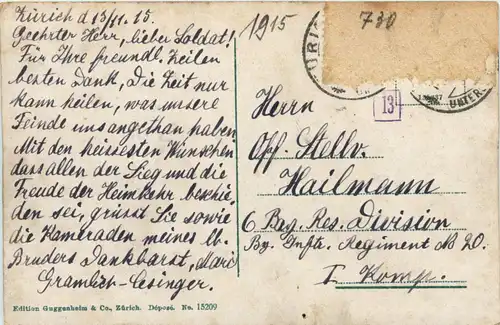 Zürich d 13/11. 15.
Geehrter Herr, lieber Soldat!
Für Ihre freundl. Zeilen
besten Dank, Die Zeit nur
kann heilen, was unsere
Feinde uns angethan haben
Mit den heissesten Wünschen
dass allen der Sieg und die
Freude der Heimkehr beschie-
den sei, grüsst Sie sowie
die Kameraden meines lb.
Bruders Dankbarst, Marie
Gramlich-Cesinger.
1915
730
ZÜRICH
UNTER
13
Herrn
Off. Stellv.
Hailmann
6 Bay. Res. Division
By. Inftr. Regiment No 20.
I. Komp.
Edition Guggenheim & Co., Zürich. Déposé. No. 15209